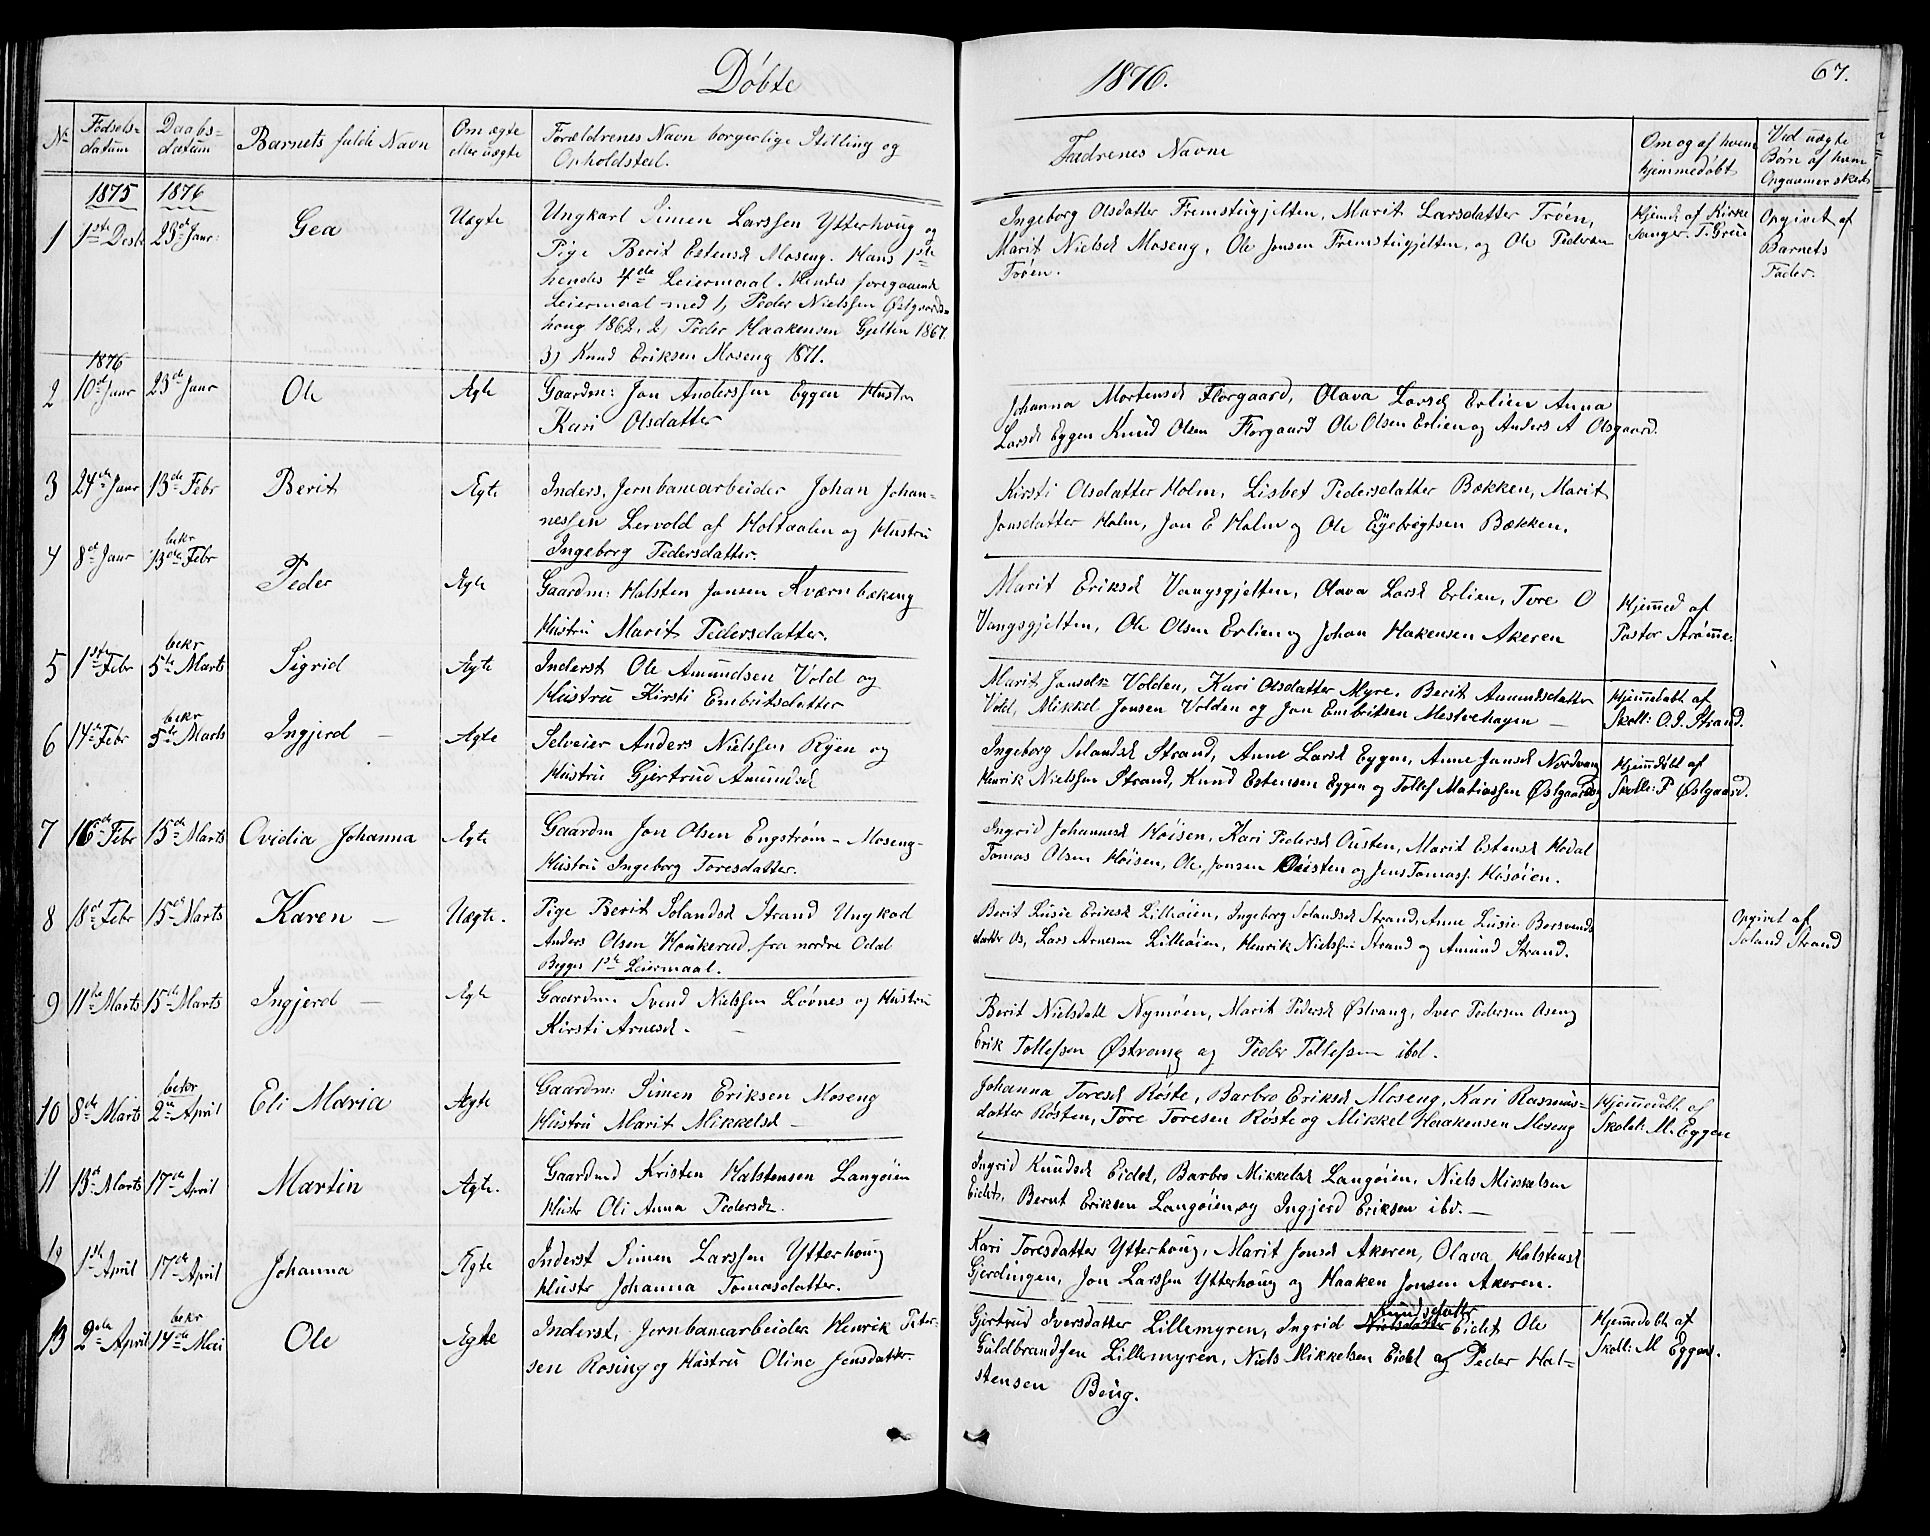 Döbte
1876.
67.
Nr.
Fødsels-
datum
Daabs-
datum
Barnets fulde Navn
Om ægte
eller uægte
Forældrenes Navn borgerlige Stilling og
Opholdsted.
Fadrenes Navne
Om og af hvem
hjemmedøbt
Ved uægte
Børn af hvem
1875
1876
1
1ste Dcbr
23de Janr
Gea
Uægte
Ungkarl Simen Larssen Ytterhoug og
Pige Berit Estensd Moseng. Hans 1ste
hendes 4de Leiermaal. Hendes foregaaende
Leiermaal med 1, Peder Nielssen Østgaards-
houg 1862, 2, Peder Haakensen Gjelten 1867.
3) Knud Eriksen Moseng 1871.
Ingeborg Olsdatter Fremstugjelten, Marit Larsdatter Trøen,
Marit Nielsd Moseng, Ole Jonsen Fremstugjelten, og Ole Pedersen
Trøen.
Hjemd af Kirke
sanger T. Grue
Opgivet af
Barnets
Fader.
1876
2
10de Janr
23de Janr
Ole
Ægte
Gaardm: Jon Anderssen Eggen Hustru
Kari Olsdatter
Johanna Mortensd Florgaard, Olava Larsd Erlien Anna
Larsd Eggen Knud Olsen Florgaard Ole Olsen Erlien og Anders A Olsgaard.
3
24de Janr
13de Febr
Berit
Ægte
Inders. Jernbanearbeider Johan Johan-
nessen Lervold af Holtaalen og Hustru
Ingeborg Pedersdatter.
Kirsti Olsdatter Holm, Lisbet Pedersdatter Bækken, Marit
Jonsdatter Holm, Jon E Holm og Ole Eÿebrigtsen Bækken.
4
8de Janr
bekr
13de Febr
Peder
Ægte
Gaardm: Halsten Jonsen Kværnbekeng
Hustru Marit Pedersdatter.
Marit Eriksd Vangsgjelten, Olava Larsd Erlien, Tore O
Vangsgjelten, Ole Olsen Erlien og Johan Hakensen Akeren
Hjemmed af
Pastor Strømme.
5
1ste Febr
bekr
5te Marts
Sigrid
Ægte
Inderst Ole Amundsen Vold og
Hustru Kirsti Embritsdatter
Marit Jonsdr Volden, Kari Olsdatter Myre, Berit Amundsdatter
Vold, Mikkel Jonsen Volden og Jon Embritsen Mestvehagen —
Hjemmedøbt af
Skoll: O. J. Strand.
6
14de Febr
bekr
5te Marts
Ingjerd —
Ægte
Selveier Anders Nielssen Ryen og
Hustru Gjertrud Amundsd
Ingeborg Jolandsd Strand, Anne Larsd Eggen, Anne Jonsd Nordvang
Henrik Nielssen Strand, Knud Estensen Eggen og Tollef Matiassen Østgaards
Hjemmedøbt af
Skolle: P Østgaard.
7
16de Febr
15de Marts
Ovidia Johanna
Ægte
Gaardm Jon Olsen Engstrøm - Moseng -
Hustru Ingeborg Toresdatter.
Ingrid Johannesd Høisen, Kari Pedersd Ousten, Marit Estensd Hodal
Tomas Olsen Høisen, Ole Jonsen Ousten og Jens Tomass. Høsøien.
8
18de Febr
15de Marts
Karen —
Uægte.
Pige Berit Jolandsd Strand Ungkarl
Anders Olsen Houkerud fra nordre Odal
Begges 1ste Leiermaal.
Berit Lusie Eriksd Lilleøien, Ingeborg Jolandsd Strand, Anne Lusie Borsvends
datter Os, Lars Arnesen Lilleøien, Henrik Nielssen Strand og Amund Strand.
Opgivet af
Joland Strand
9
11te Marts
15de Marts
Ingjerd —
Ægte
Gaardm. Svend Nielssen Løvnes og Hustru
Kirsti Arnesd. —
Berit Nielsdatt Nymoen, Marit Pedersd Østvang, Iver Pedersen Aseng
Erik Tollefsen Østvang og Peder Tollefsen ibd.
10
8de Marts
bekr
2den April
Eli Maria
Ægte
Gaardm: Simen Eriksen Moseng
Hustru Marit Mikkelsd —
Johanna Toresd Røste, Barbro Eriksd Moseng, Kari Rasmus-
datter Røsten, Tore Toresen Røste og Mikkel Haakensen Moseng
Hjemmedøbt af
Skolel: M. Eggen
11
13de Marts
17de April
Martin
Ægte.
Gaardmd Kristen Halstensen Langøien
Hustr Oli Anna Pedersdr.
Ingrid Knudsd Eidet, Barbro Mikkelsd Langøien, Niels Mikkelsen
Eidet, Bernt Eriksen Langøien og Ingjerd Eriksen ibd. —
12
1ste April
17de April
Johanna
Ægte
Inderst Simen Larssen Ytterhoug
Hustr Johanna Tomasdatter.
Kari Toresdatter Ytterhoug, Marit Jonsd Akeren, Olava Halstensd
Gjerdingen, Jon Larssen Ytterhoug og Haaken Jonsen Akeren.
13
2den April
bekr
14de Mai
Ole
Ægte
Inderst, Jernbanearbeider Henrik Peter-
sen Rosing og Hustru Oline Jensdatter.
Knudsdatter
Gjertrud Iversdatter Lillemyren, Ingrid Nielsdatter Eidet Ole
Guldbrandsen Lillemyren, Niels Mikkelsen Eidet og Peder Hal-
stensen Boug.
Hjemmedøbt af
Skoll: M Eggen.